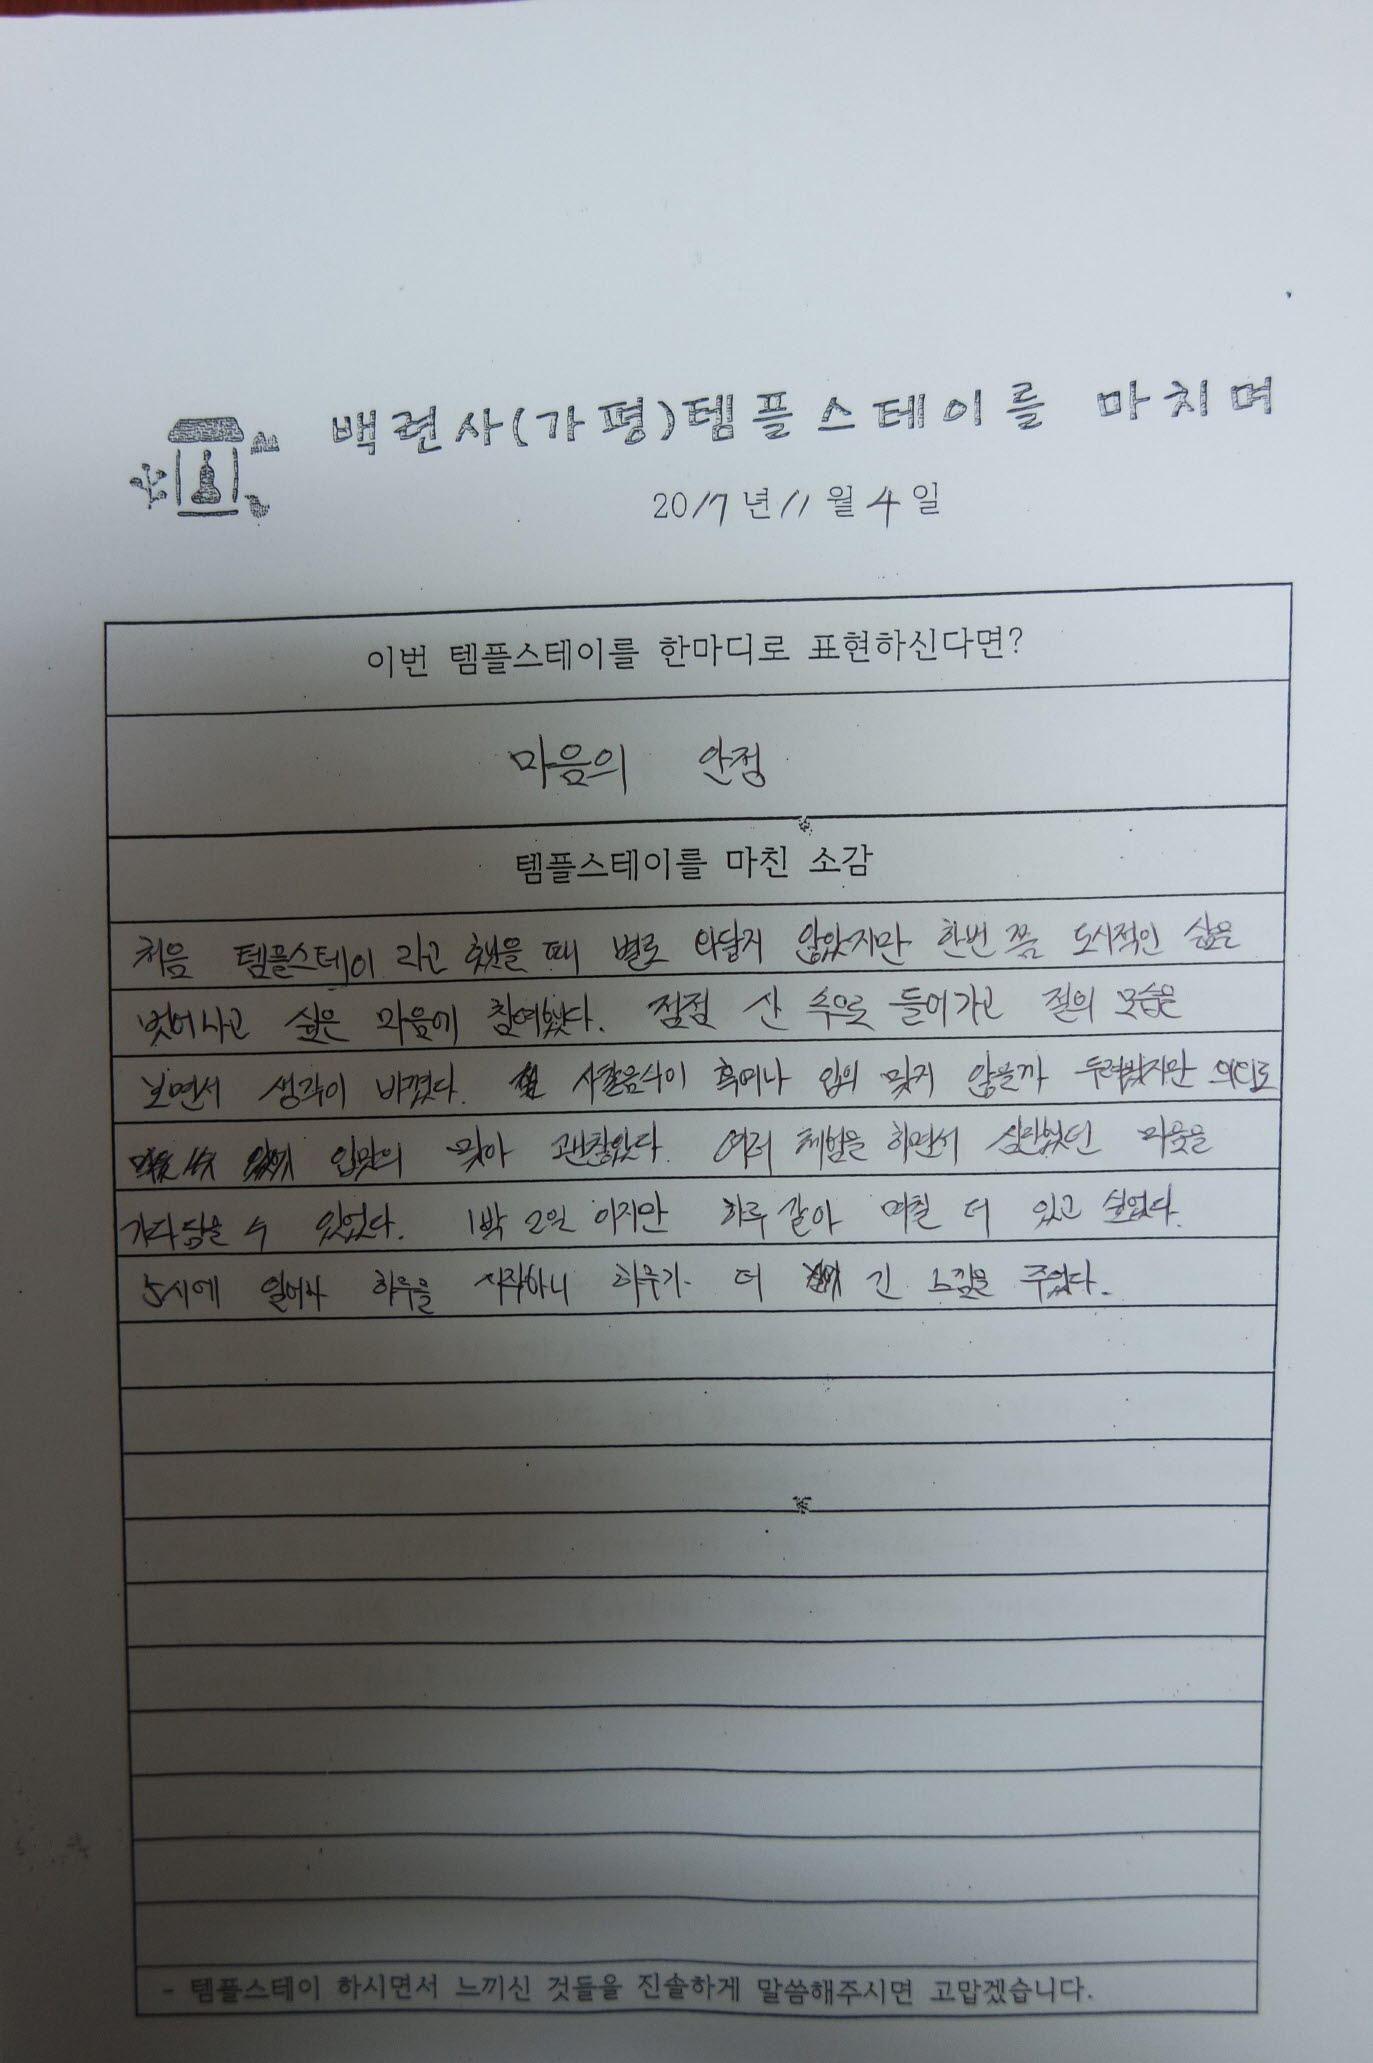 백련사(가평)템플스테이를 마치며
2017년 11월 4일
이번 템플스테이를 한마디로 표현하신다면?
마음의 안정
템플스테이를 마친 소감
처음 템플스테이 라고 했을 때 별로 와닿지 않았지만 한번 쯤 도시적인 삶은
벗어나고 싶은 마음에 참여했다. 점점 산 속으로 들어가고 절의 모습은
보면서 생각이 바꼈다. 사찰음식이 혹여나 입의 맞지 않을까 두려웠지만 의외로
입맛의 맞아 괜찮았다. 여러 체험을 하면서 심란했던 마음을
가다듬을 수 있었다. 1박 2일 이지만 하루 같아 며칠 더 있고 싶었다.
5시에 일어나 하루를 시작하니 하루가 더 긴 느낌을 주었다.
- 템플스테이 하시면서 느끼신 것들을 진솔하게 말씀해주시면 고맙겠습니다.